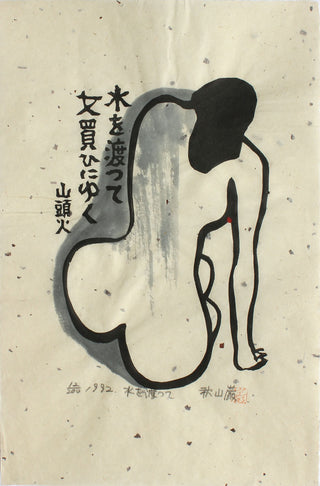 水を渡つて
女買ひにゆく
山頭火
1992 水を渡つて 秋山巌